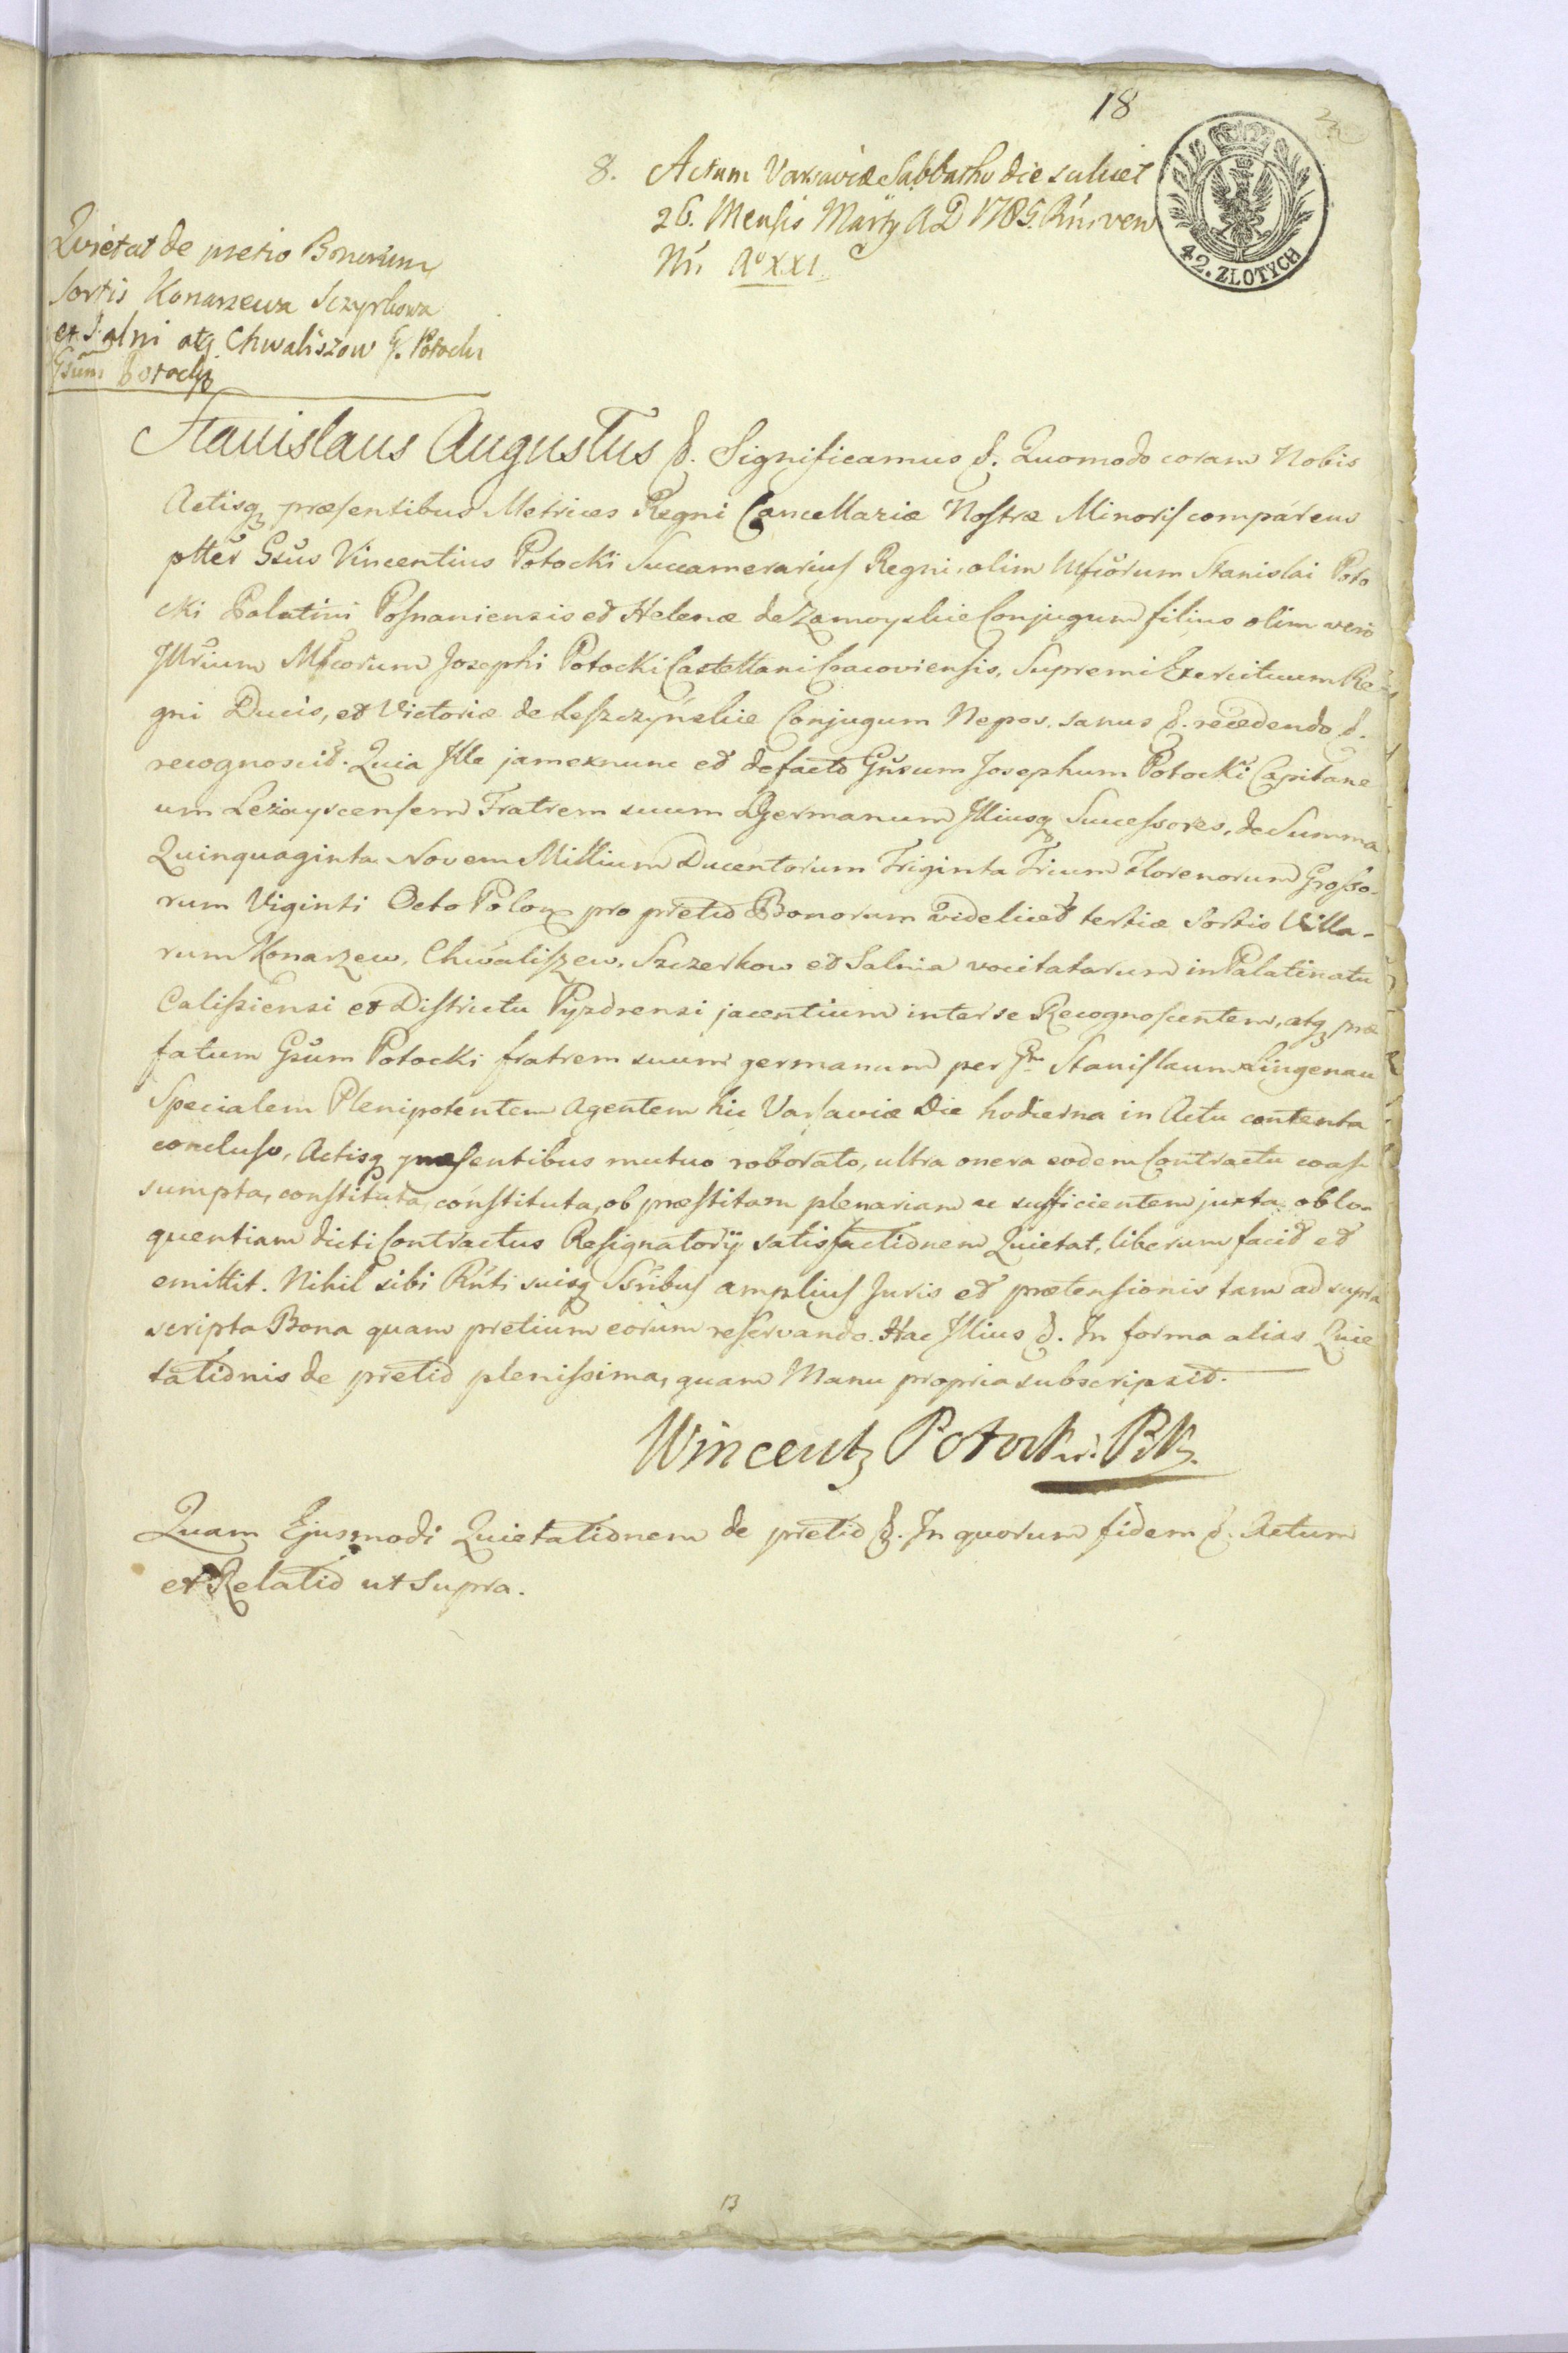 18
8. Actum Varsaviæ Sabbatho die scilicet
26. Mensis Martij A D 1785. Rni ven
Nri Aº XXI
42. ZŁOTYCH
Quietat de pretio Bonorum
Sortis Konarzewa Sczyrkowa
et Salni atq Chwaliszow G. Potocki
Gsum Potocky
Stanislaus Augustus &. Significamus &. Quomodo coram Nobis
Actisq præsentibus Metrices Regni Cancellariæ Nostræ Minoris comparens
ptter Gsus Vincentius Potocki Succamerarius Regni, olim Mfcorum Stanislai Poto
cki Palatini Posnaniensis et Helenæ de Zamoyskie Conjugum filius olim vero
Jllrium Mfcorum Josephi Potocki Castellani Cracoviensis, Supremi Exercituum Re-
gni Ducis, et Victoriæ de Leszczyńskie Conjugum Nepos. sanus &. recedendo &.
recognoscit. Quia Jlle jam ex nunc et de facto Gnsum Josephum Potocki Capitane
um Leżayscensem Fratrem suum Germanum Jlliusq Successores, de Summa
Quinquaginta Novem Millium Ducentorum Triginta Trium Florenorum Grosso-
rum Viginti Octo Polon pro pretio Bonorum videlicet tertiæ Sortis Villa-
rum Konarzew, Chwaliszew, Szczerkow et Salnia vocitatarum in Palatinatu
Calissiensi et Districtu Pyzdrensi jacentium inter se Recognoscentem, atq præ
fatum Gsum Potocki fratrem suum germanum per Gm Stanislaum Lingenau
Specialem Plenipotentem Agentem hic Varsaviæ Die hodierna in Actu contenta
concluso, Actisq præsentibus mutuo roborato, ultra onera eodem Contractu coas
sumpta, constituta, constituta, ob præstitam plenariam ac sufficientem juxta oblo-
quentiam dicti Contractus Resignatorij satisfactionem Quietat, liberum facit et
emittit. Nihil sibi Rnti suisq Ssribus amplius Juris et prætensionis tam ad supra
scripta Bona quam pretium eorum reservando. Hac Jllius &. In forma alias Quie
tationis de pretio plenissima, quam Manu propria subscripsit.
Wincenty Potocki. P.K.
Quam Ejusmodi Quietationem de pretio &. In quorum fidem &. Actum
et Relatio ut Supra.
13